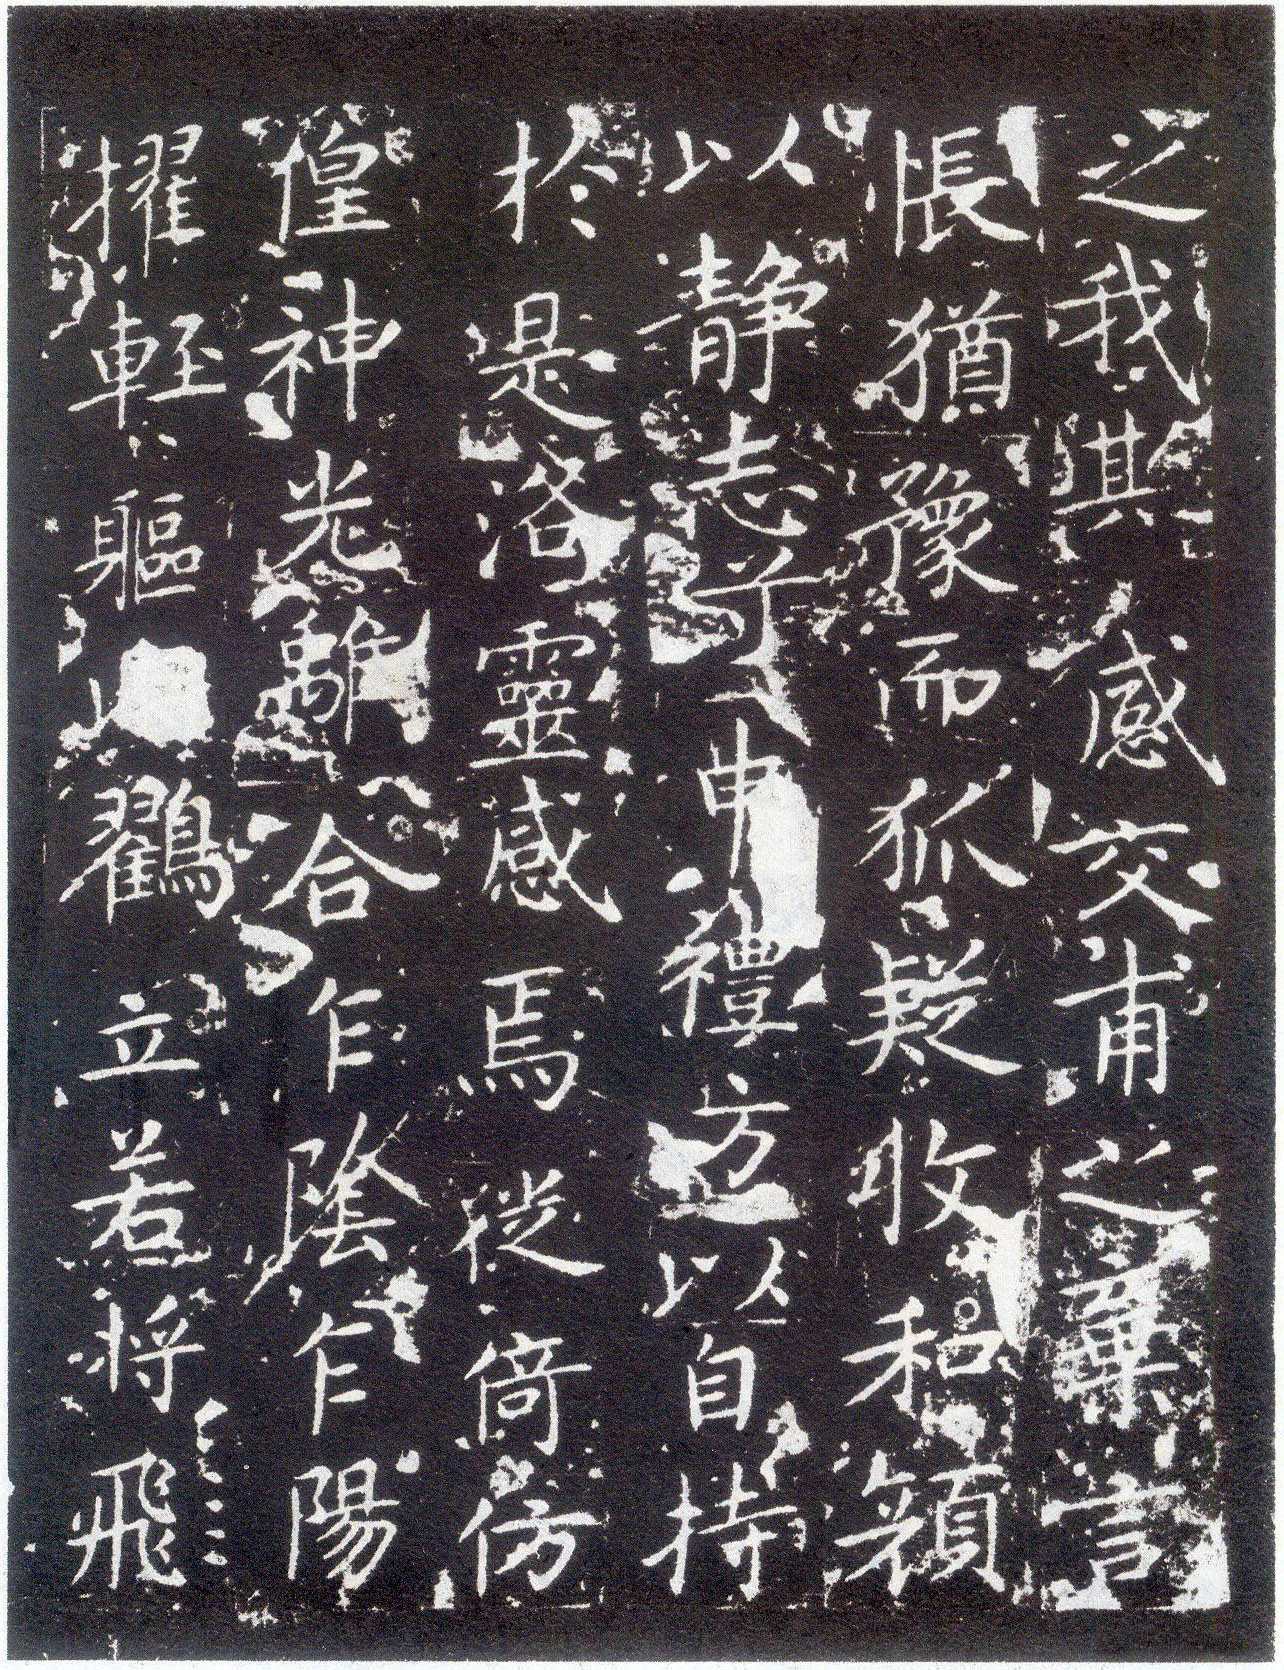 之我其感交甫之棄言
悵猶豫而狐疑收和顏
以靜志兮申禮方以自持
於是洛靈感焉徙倚仿
偟神光離合乍陰乍陽
擢輕軀以鶴立若將飛